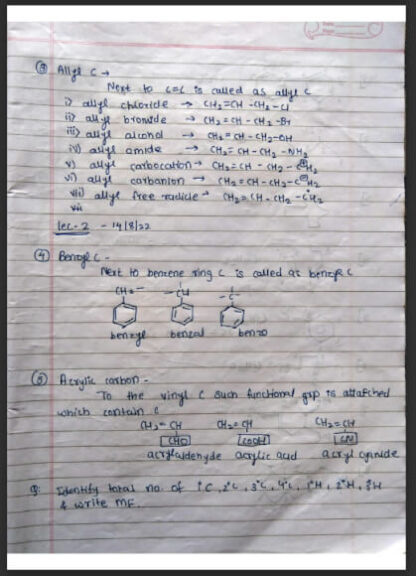 ③ Allyl C →
Next to C=C is called as allyl C
i) allyl chloride → CH₂=CH-CH₂-Cl
ii) allyl bromide → CH₂=CH-CH₂-Br
iii) allyl alcohol → CH₂=CH-CH₂-OH
iv) allyl amide → CH₂=CH-CH₂-NH₂
v) allyl carbocation → CH₂=CH-CH₂-C⊕H₂
vi) allyl carbanion → CH₂=CH-CH₂-C⊖H₂
vii) allyl free radicle → CH₂=CH-CH₂-ĊH₂
viii
lec-2 - 14/8/22
④ Benzyl C -
Next to benzene ring C is called as benzyl C
CH₂- -CH -C-
benzyl benzal benzo
⑤ Acrylic carbon -
To the vinyl C such functional grp is attatched
which contain C
CH₂=CH CH₂=CH CH₂=CH
CHO COOH CN
acrylaldehyde acrylic acid acryl cynide
Q: Identify total no. of 1°C, 2°C, 3°C, 4°C, 1°H, 2°H, 3°H
& write MF.